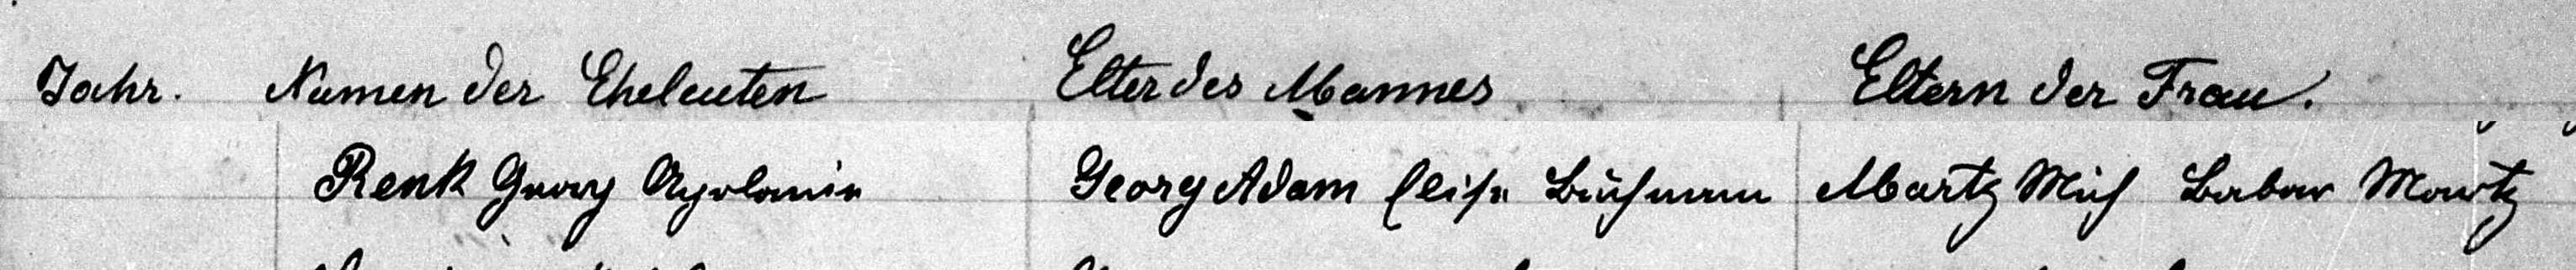 Jahr. Namen der Eheleuten Elter des Mannes Eltern der Frau.
Renk Georg Apolonia Georg Adam Elisa Buchmann Martz Mich Barbar Martz